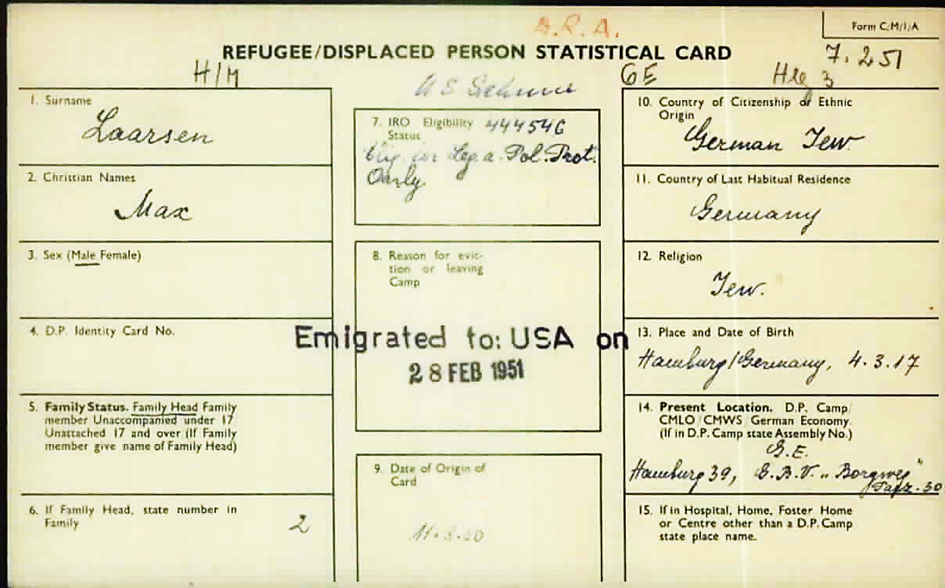 A.R.A.
Form C/M/1/A
REFUGEE/DISPLACED PERSON STATISTICAL CARD
7.2.51
H/M
US Scheme
GE
1. Surname
Laarsen
2. Christian Names
Max
3. Sex (Male Female)
4. D.P. Identity Card No.
5. Family Status. Family Head Family
member Unaccompanied under 17
Unattached 17 and over (If Family
member give name of Family Head)
6. If Family Head, state number in
Family
2
7. IRO Eligibility 444546
Status
Elig for Leg. a. Pol. Prot.
Only
8. Reason for evic-
tion or leaving
Camp
Emigrated to: USA on
28 FEB 1951
9. Date of Origin of
Card
10. Country of Citizenship or Ethnic
Origin
German Jew
11. Country of Last Habitual Residence
Germany
12. Religion
Jew.
13. Place and Date of Birth
Hamburg/Germany, 4.3.17
14. Present Location. D.P. Camp/
CMLO/CMWS/German Economy.
(If in D.P. Camp state Assembly No.)
G.E.
Hamburg 39, "Borgweg"
15. If in Hospital, Home, Foster Home
or Centre other than a D.P. Camp
state place name.